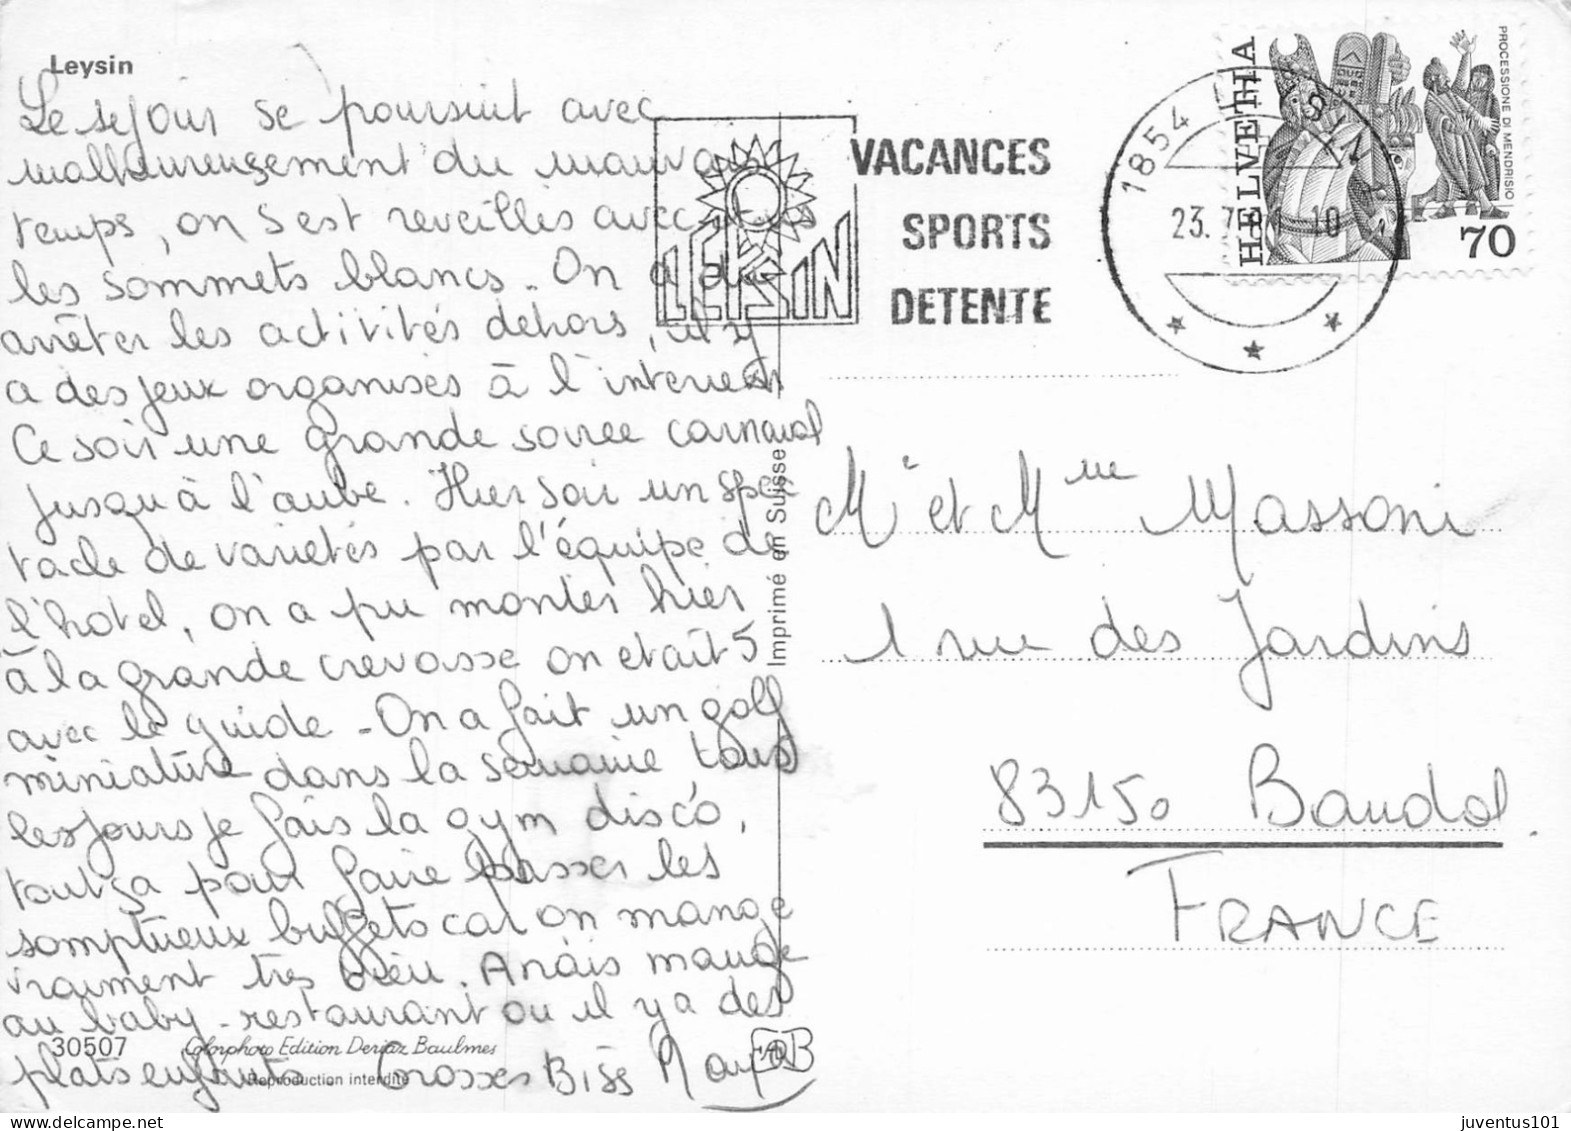 Leysin
Le sejour se poursuit avec
malheureusement du mauvais
temps, on s'est reveillés avec
les sommets blancs. On a du
arrêter les activités dehors, il y
a des jeux organisés à l'interieur
Ce soir une grande soiree carnaval
jusqu'à l'aube. Hier soir un spec
tacle de varietés par l'équipe de
l'hotel, on a pu monter hier
à la grande crevasse on etait 5
avec le guide - On a fait un golf
miniature dans la semaine tous
les jours je fais la gym disco,
tout ça pour faire passer les
somptueux buffets car on mange
vraiment très bien. Anaïs mange
au baby-restaurant ou il y a des
plats enfants Grosses Biss
30507 Colorphoto Edition Deriaz Baulmes
Reproduction interdite
Imprimé en Suisse
LEYSIN
VACANCES
SPORTS
DETENTE
1854 LEYSIN
23. 7. 10
HELVETIA
PROCESSIONE DI MENDRISIO
70
Mr et Mme Massoni
1 rue des Jardins
83150 Bandol
FRANCE
juventus101